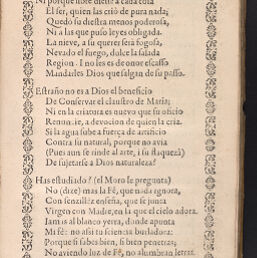 Ni porque libre dieſſe à cada coſa
El ſer, quien las criò de pura nada;
Quedò ſu dieſtra menos poderoſa,
Ni a las que puſo leyes obligada.
La nieve, a ſu querer ſerà fogoſa,
Nevado el fuego, dulce la ſalada
Region. I no les es de onor eſcaſſo
Mandarles Dios que ſalgan de ſu paſſo.
Eſtraño no es a Dios el beneficio
De Conſervar el clauſtro de Maria;
Ni en la criatura es nuevo que ſu oficio
Renuncie, a devocion de quien la cria.
Si la agua ſube a fuerça de artificio
Contra ſu natural, porque no avia
(Pues aun ſe rinde al arte, i ſu flaqueza)
De ſujetarſe a Dios naturaleza?
Has eſtudiado? (el Moro le pregunta)
No (dize) mas la Fè, que nada ignora,
Con ſenzillez enſeña, que ſe junta
Virgen con Madre, en la que el cielo adora.
Jamas al blanco yerra, donde apunta
Mi fè: no aſsi tu ſciencia burladora:
Porque ſi ſabes bien, ſi bien penetras;
No aviendo luz de Fè, no alumbran letras.